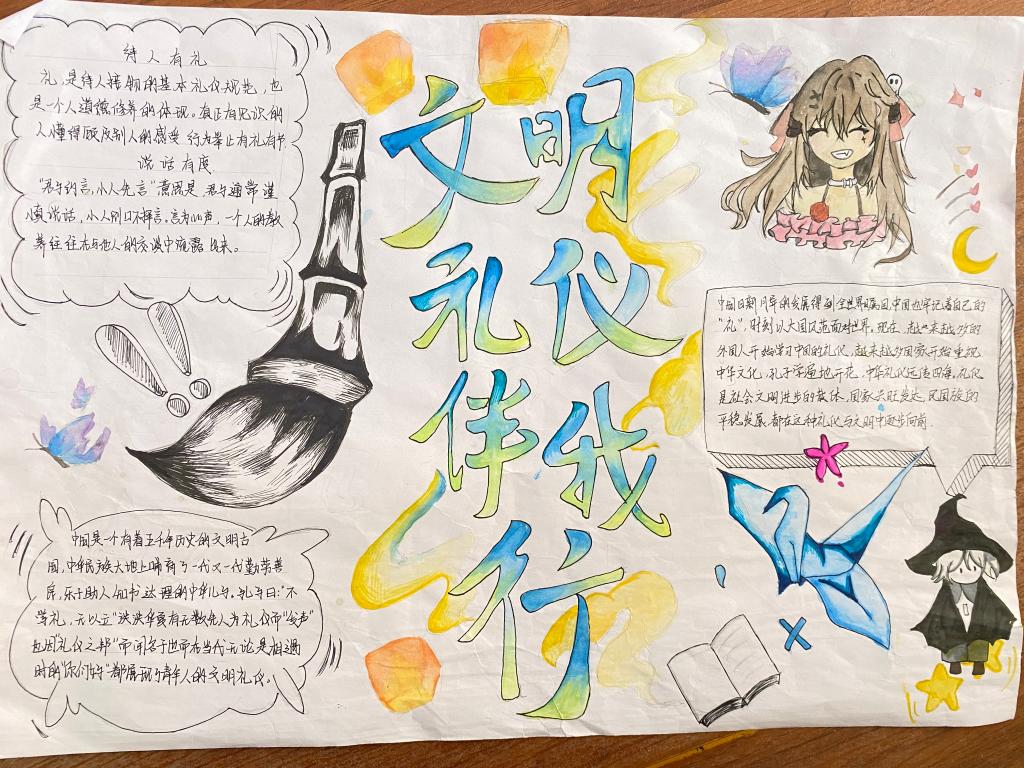 待人有礼
礼是待人接物的基本礼仪规范，也
是一个人道德修养的体现。真正有见识的
人懂得顾及别人的感受 行为举止有礼有节
说话有度
“君子约言，小人先言”意思是，君子通常谨
慎说话，小人则口不择言，言为心声，一个人的教
养往往在与他人的交谈中流露出来。
文明
礼仪
伴我
行
中国日新月异的发展得到全世界瞩目，中国也牢记着自己的
“礼”，时刻以大国风范面对世界，现在，越来越多的
外国人开始学习中国的礼仪，越来越多国家开始重视
中华文化，孔子学院遍地开花，中华礼仪远传四海，礼仪
是社会文明进步的载体，国家兴旺发达，民国族的
平稳发展，都在这种礼仪与文明中逐步向前
中国是一个有着五千年历史的文明古
国，中华民族大地上哺育了一代又一代勤劳善
良，乐于助人，知书达理的中华儿女。孔子曰：“不
学礼，无以立”泱泱华夏有无数先人为礼仪而“发声”
也因“礼仪之邦”而闻名于世而在当代无论是相遇
时的“你们好”都展现了青年人的文明礼仪。